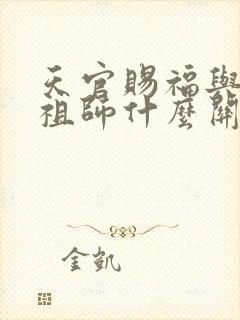 天官賜福與
祖師什麼關
金凱